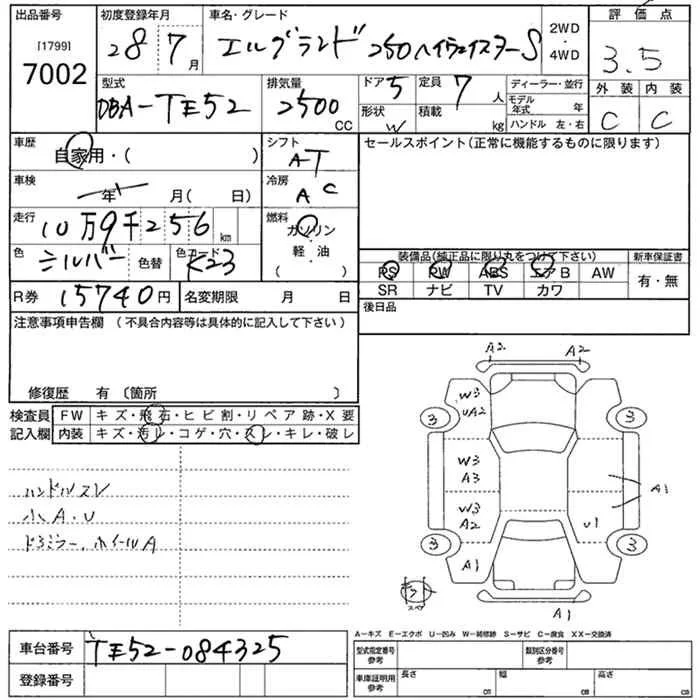 出品番号
[1799]
7002
初度登録年月
28 7 月
車名・グレード
エルグランド 250ハイウェイスターS
2WD
・
4WD
評価点
3.5
外装 内装
C C
型式
DBA-TE52
排気量
2500 CC
ドア 5
形状 W
定員 7 人
積載 kg
ディーラー・並行
モデル年式 年
ハンドル 左・右
車歴
自家用・( )
シフト
AT
車検
年 月( 日)
冷房
AC
走行
10万9千256 km
燃料
ガソリン
軽・油
( )
色
シルバー
色替
色カード
K23
R券 15740円
名変期限 月 日
セールスポイント(正常に機能するものに限ります)
装備品(純正品に限り丸をつけて下さい)
PS PW ABS エアB AW
SR ナビ TV カワ
新車保証書
有・無
後日品
注意事項申告欄 (不具合内容等は具体的に記入して下さい)
修復歴 有 〔箇所 〕
検査員
記入欄
FW キズ・飛石・ヒビ割・リペア跡・X要
内装 キズ・汚レ・コゲ・穴・スレ・キレ・破レ
ハンドルスレ
小A.U
ドアミラー、ホイールA
A2 A2
W3
UA2
3 3
W3
A3
A1
W3
A2
U1
3 3
A1
スペア
A1
A－キズ E－エクボ U－凹み W－補修跡 S－サビ C－腐食 XX－交換済
車台番号 TE52-084325
登録番号
型式指定番号
参考
類別区分番号
参考
車庫証明用
参考
長さ cm
幅 cm
高さ cm